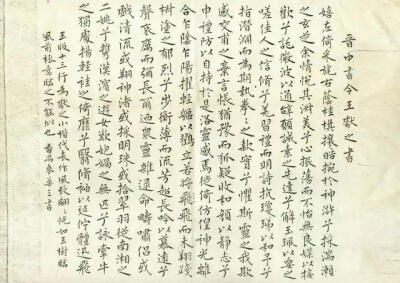 晉中書令王獻之書
嬉左倚采旄右蔭桂旗攘皓腕於神滸兮採湍瀨
之玄芝余情悅其淑美兮心振蕩而不怡無良媒以接
歡兮託微波以通辭願誠素之先達兮解玉珮以要之
嗟佳人之信脩兮羌習禮而明詩抗瓊珶以和予兮
指潛淵而為期執拳〻之款實兮懼斯靈之我欺
感交甫之棄言悵猶豫而狐疑收和顏以靜志兮
申禮防以自持於是洛靈感焉徙倚仿偟神光離
合乍陰乍陽擢輕軀以鶴立若將飛而未翔踐
椒塗之郁烈兮步衡薄而流芳超長吟以慕遠兮
聲哀厲而彌長爾迺眾靈雜遝命疇嘯侶或
戲清流或翔神渚或採明珠或拾翠羽從南湘之
二姚兮攜漢濱之游女歎炮媧之無匹兮詠牽牛
之獨處揚輕袿之倚靡兮翳脩袖以延佇體迅飛
王版十三行為獻之小楷代表作風致翩〻恍如玉樹臨
風前擬意臨之不能似也